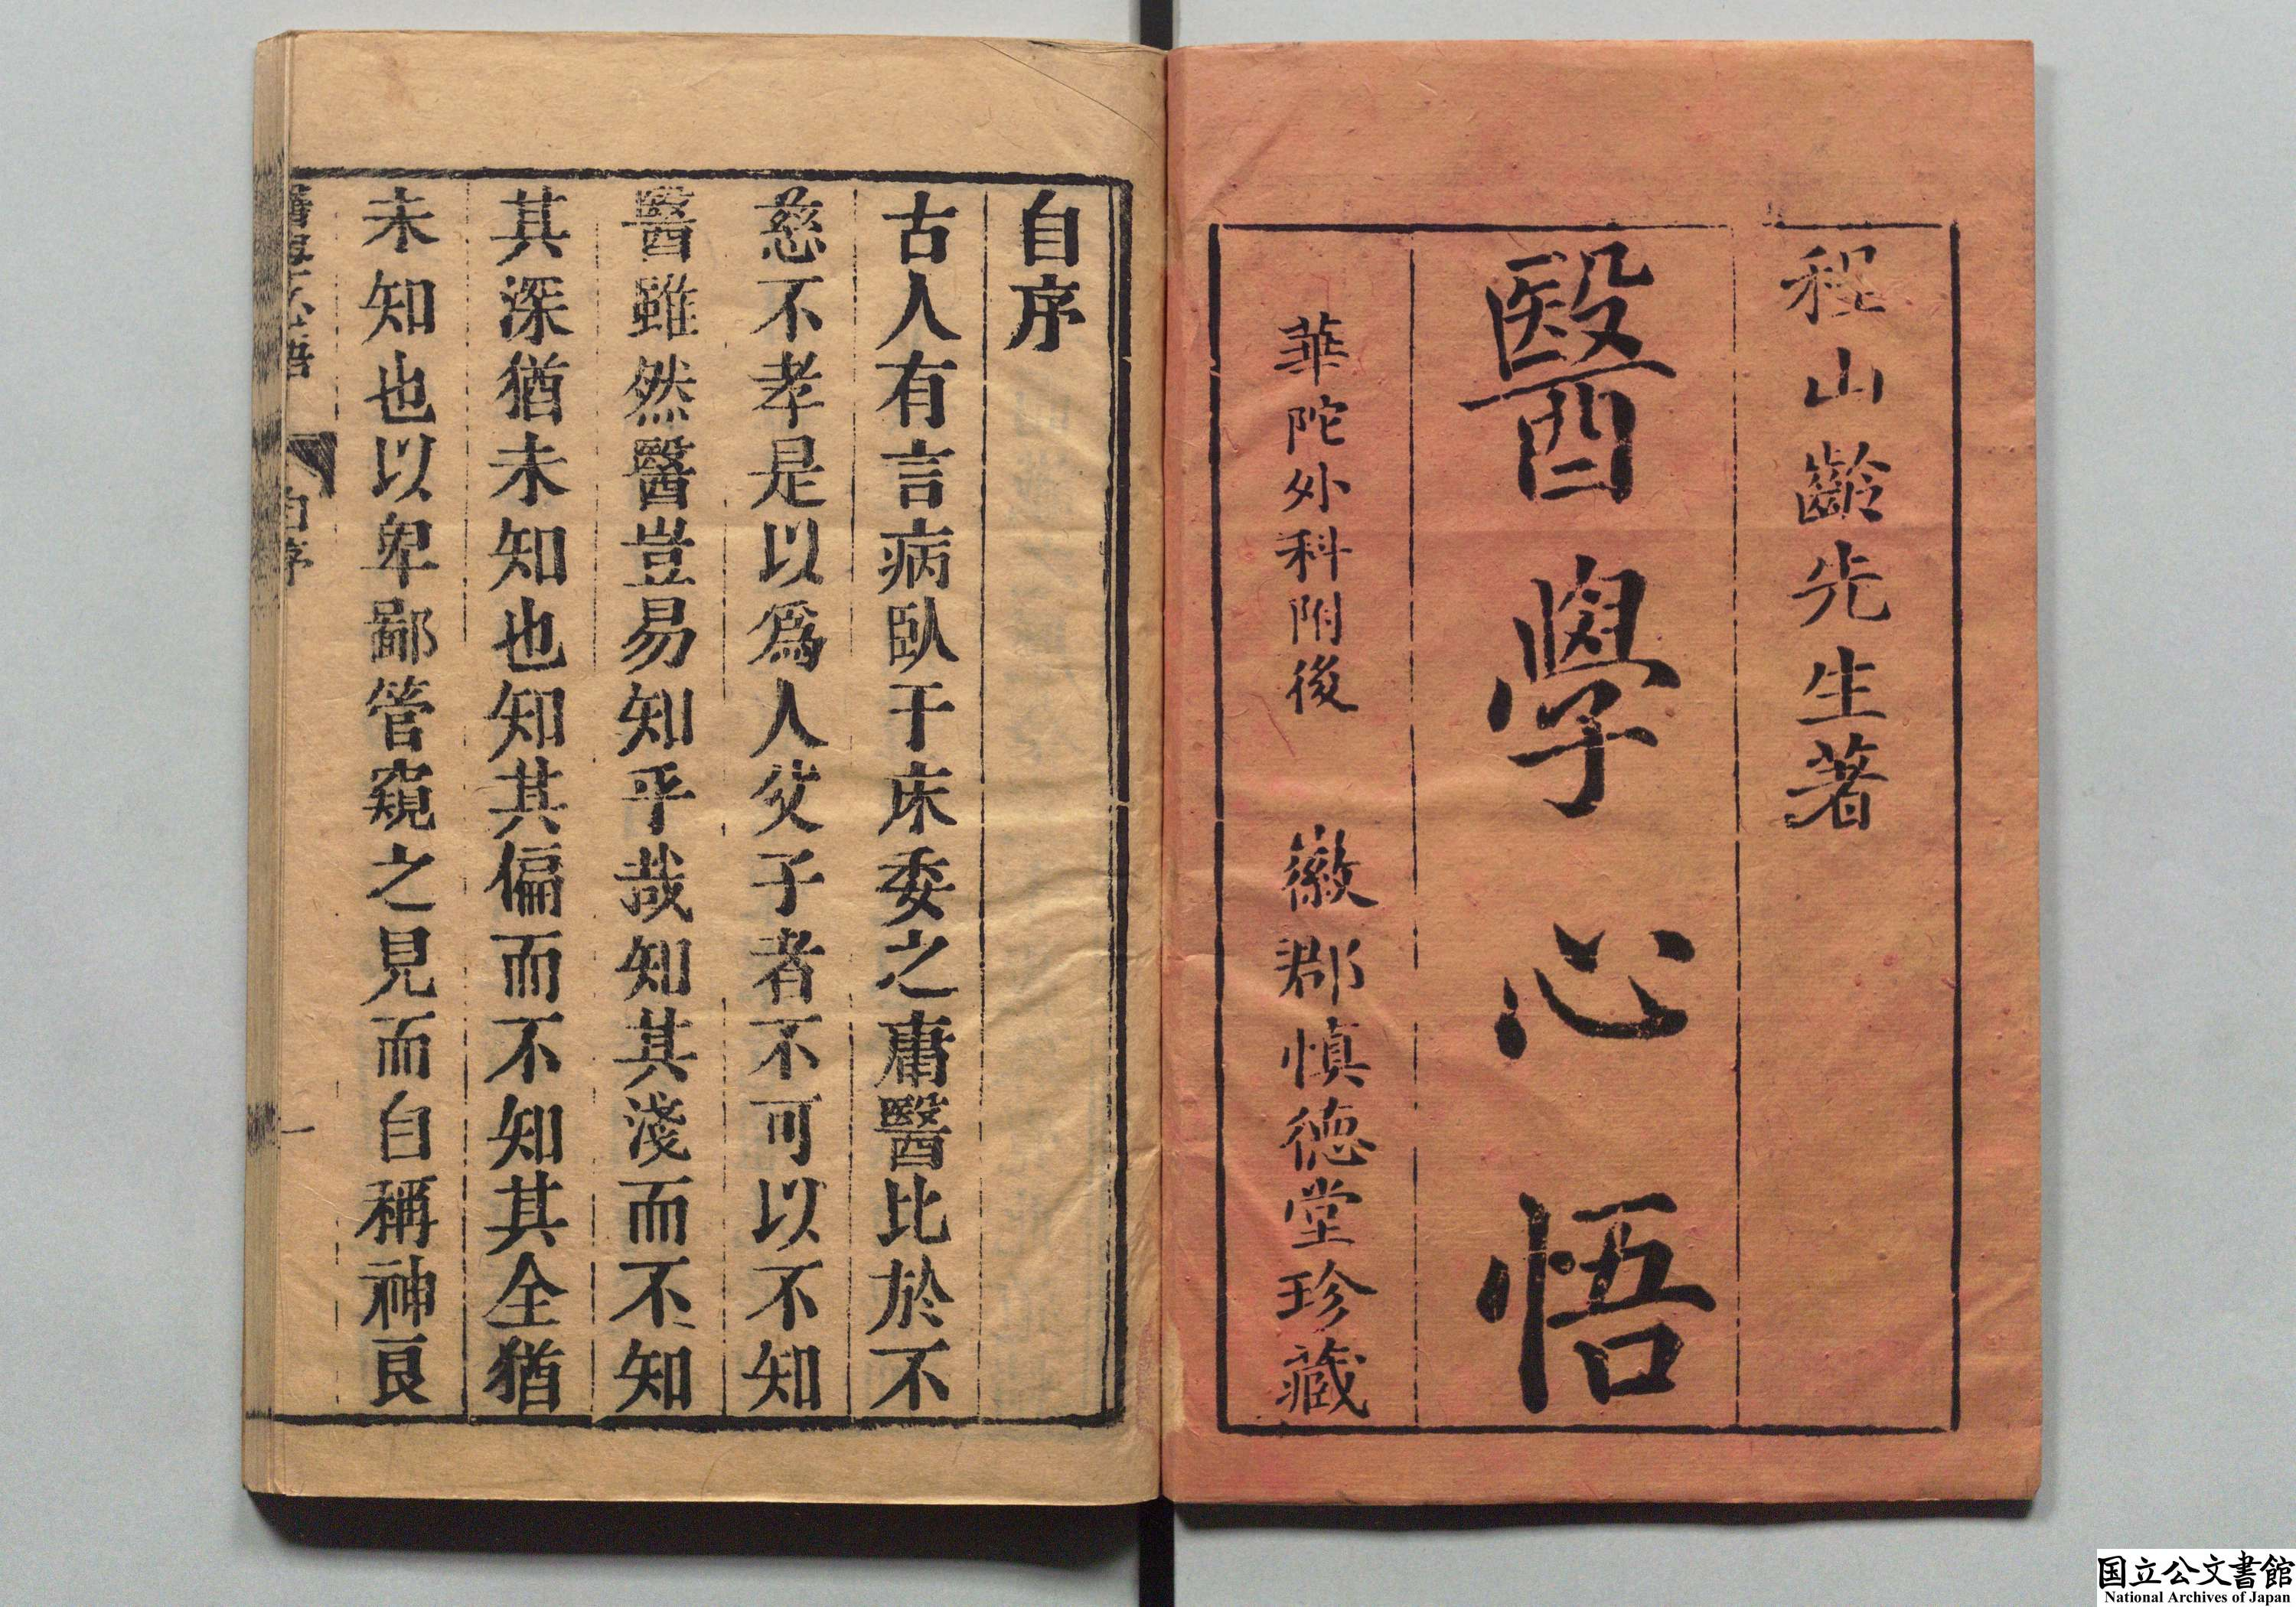 程山齡先生著
醫學心悟
華陀外科附後　徽郡慎德堂珍藏
自序
古人有言病臥于床委之庸醫比於不
慈不孝是以爲人父子者不可以不知
醫雖然醫豈易知乎哉知其淺而不知
其深猶未知也知其偏而不知其全猶
未知也以卑鄙管窺之見而自稱神良
醫學心悟　自序　一
国立公文書館
National Archives of Japan